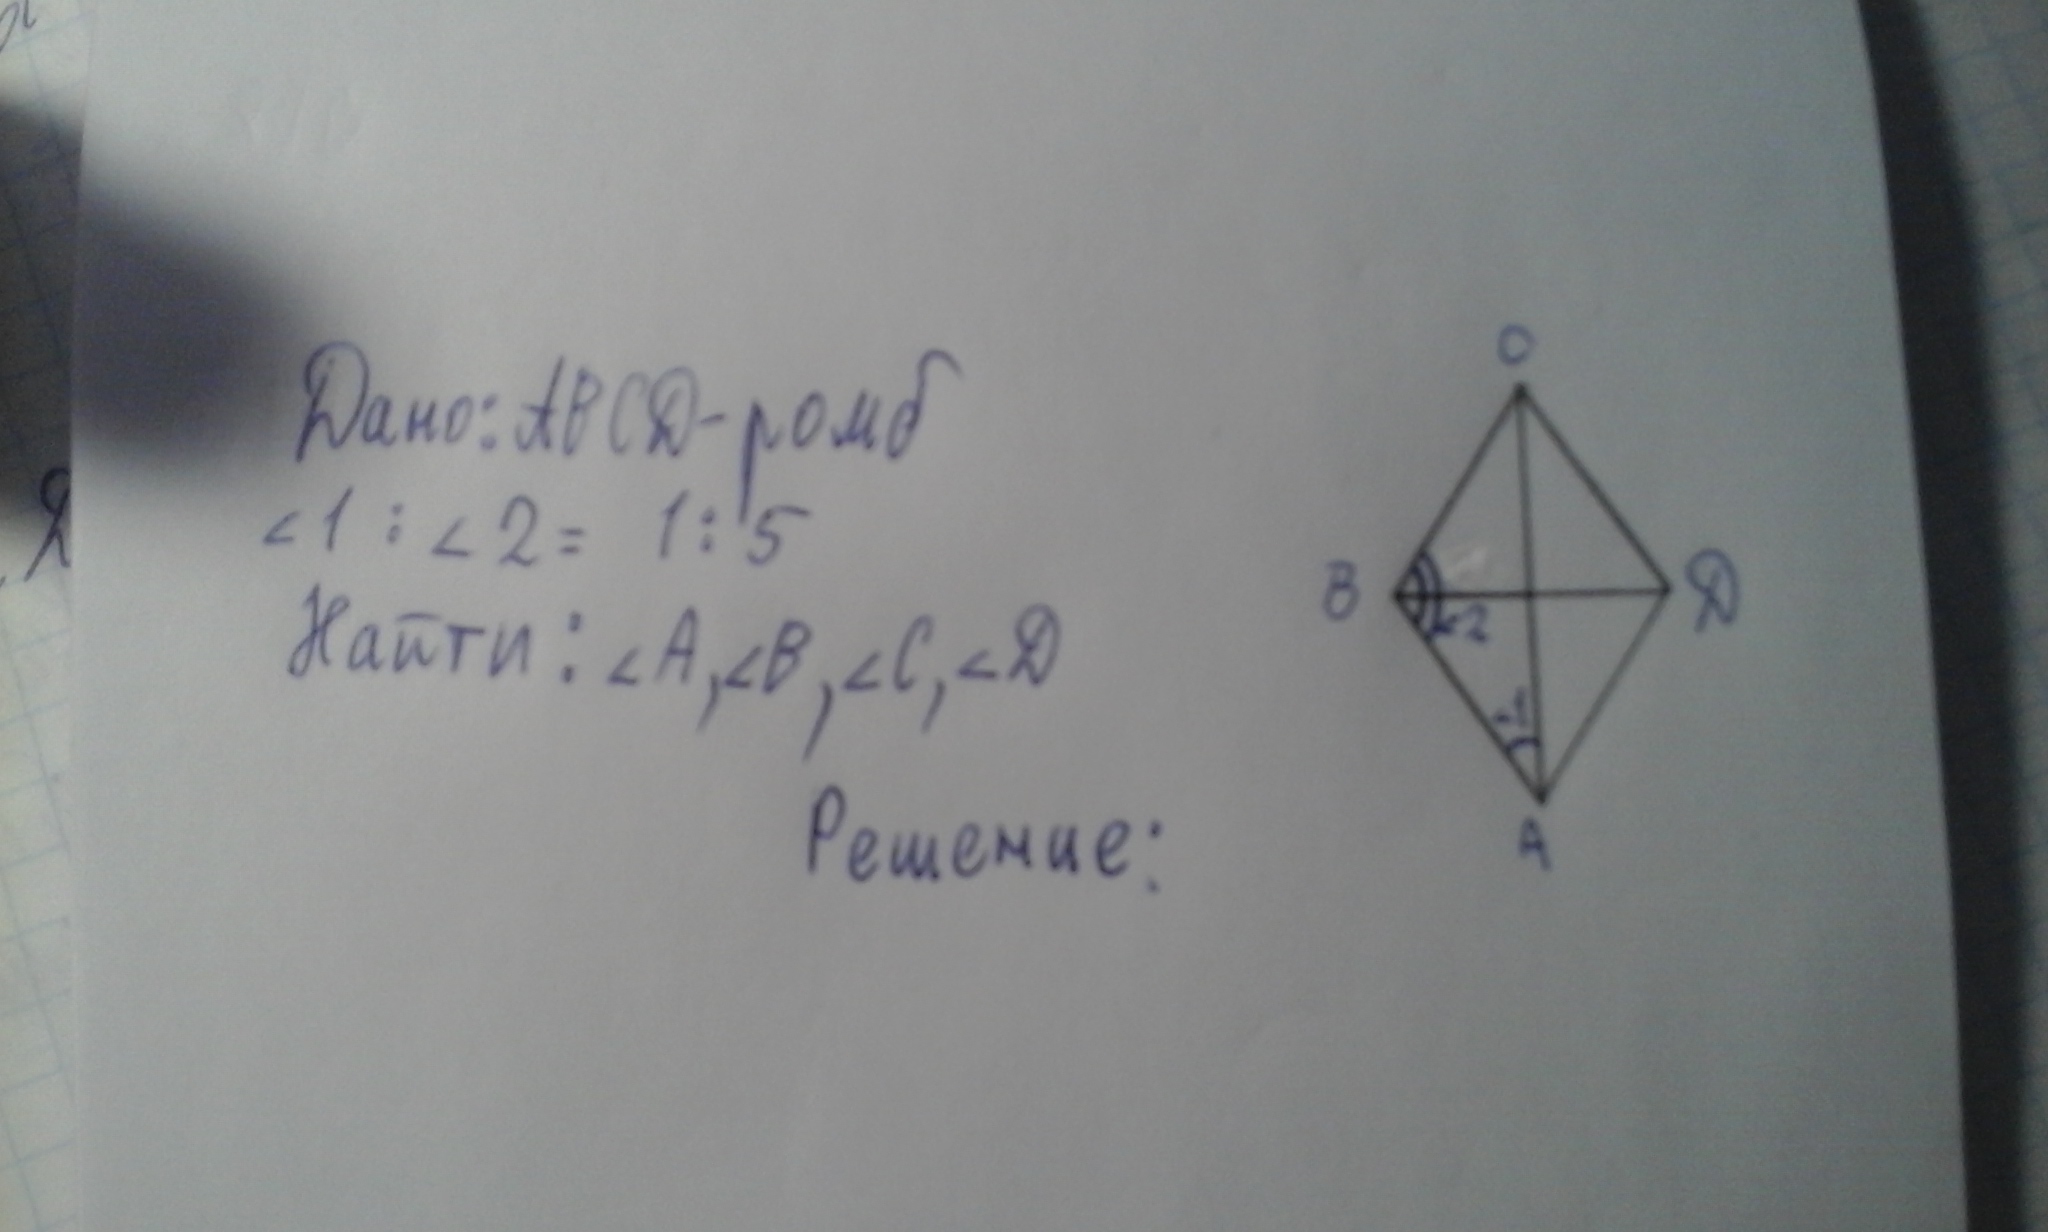 Дано: ABCD - ромб
<1 : <2 = 1:5
Найти: <A, <B, <C, <D
Решение:
C
B
D
<2
<1
A